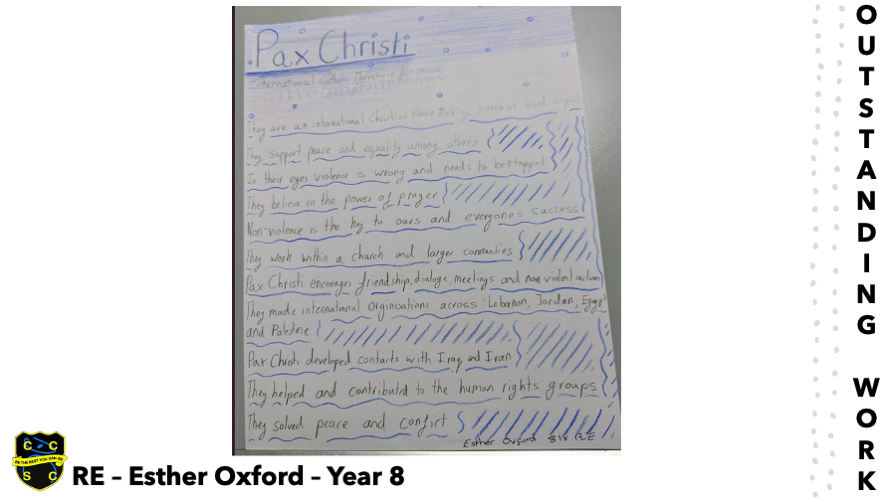 Pax Christi
International Catholic Movement for peace
They are an international Christian Peace Making movement
They support peace and equality among others
In their eyes violence is wrong and needs to be stopped
They believe in the power of prayer
Non-violence is the key to ours and everyones success
They work within a church and larger communities
Pax Christi encourages friendship, dialoge, meetings and non violent action
They made international Orginisations across: Lebanon, Jordan, Egypt
and Palestine
Pax Christi developed contacts with Iraq and Iran
They helped and contributed to the human rights groups
They solved peace and conflict
Esther Oxford 8 RE
C C
BE THE BEST YOU CAN BE
S C
RE – Esther Oxford – Year 8
OUTSTANDING WORK